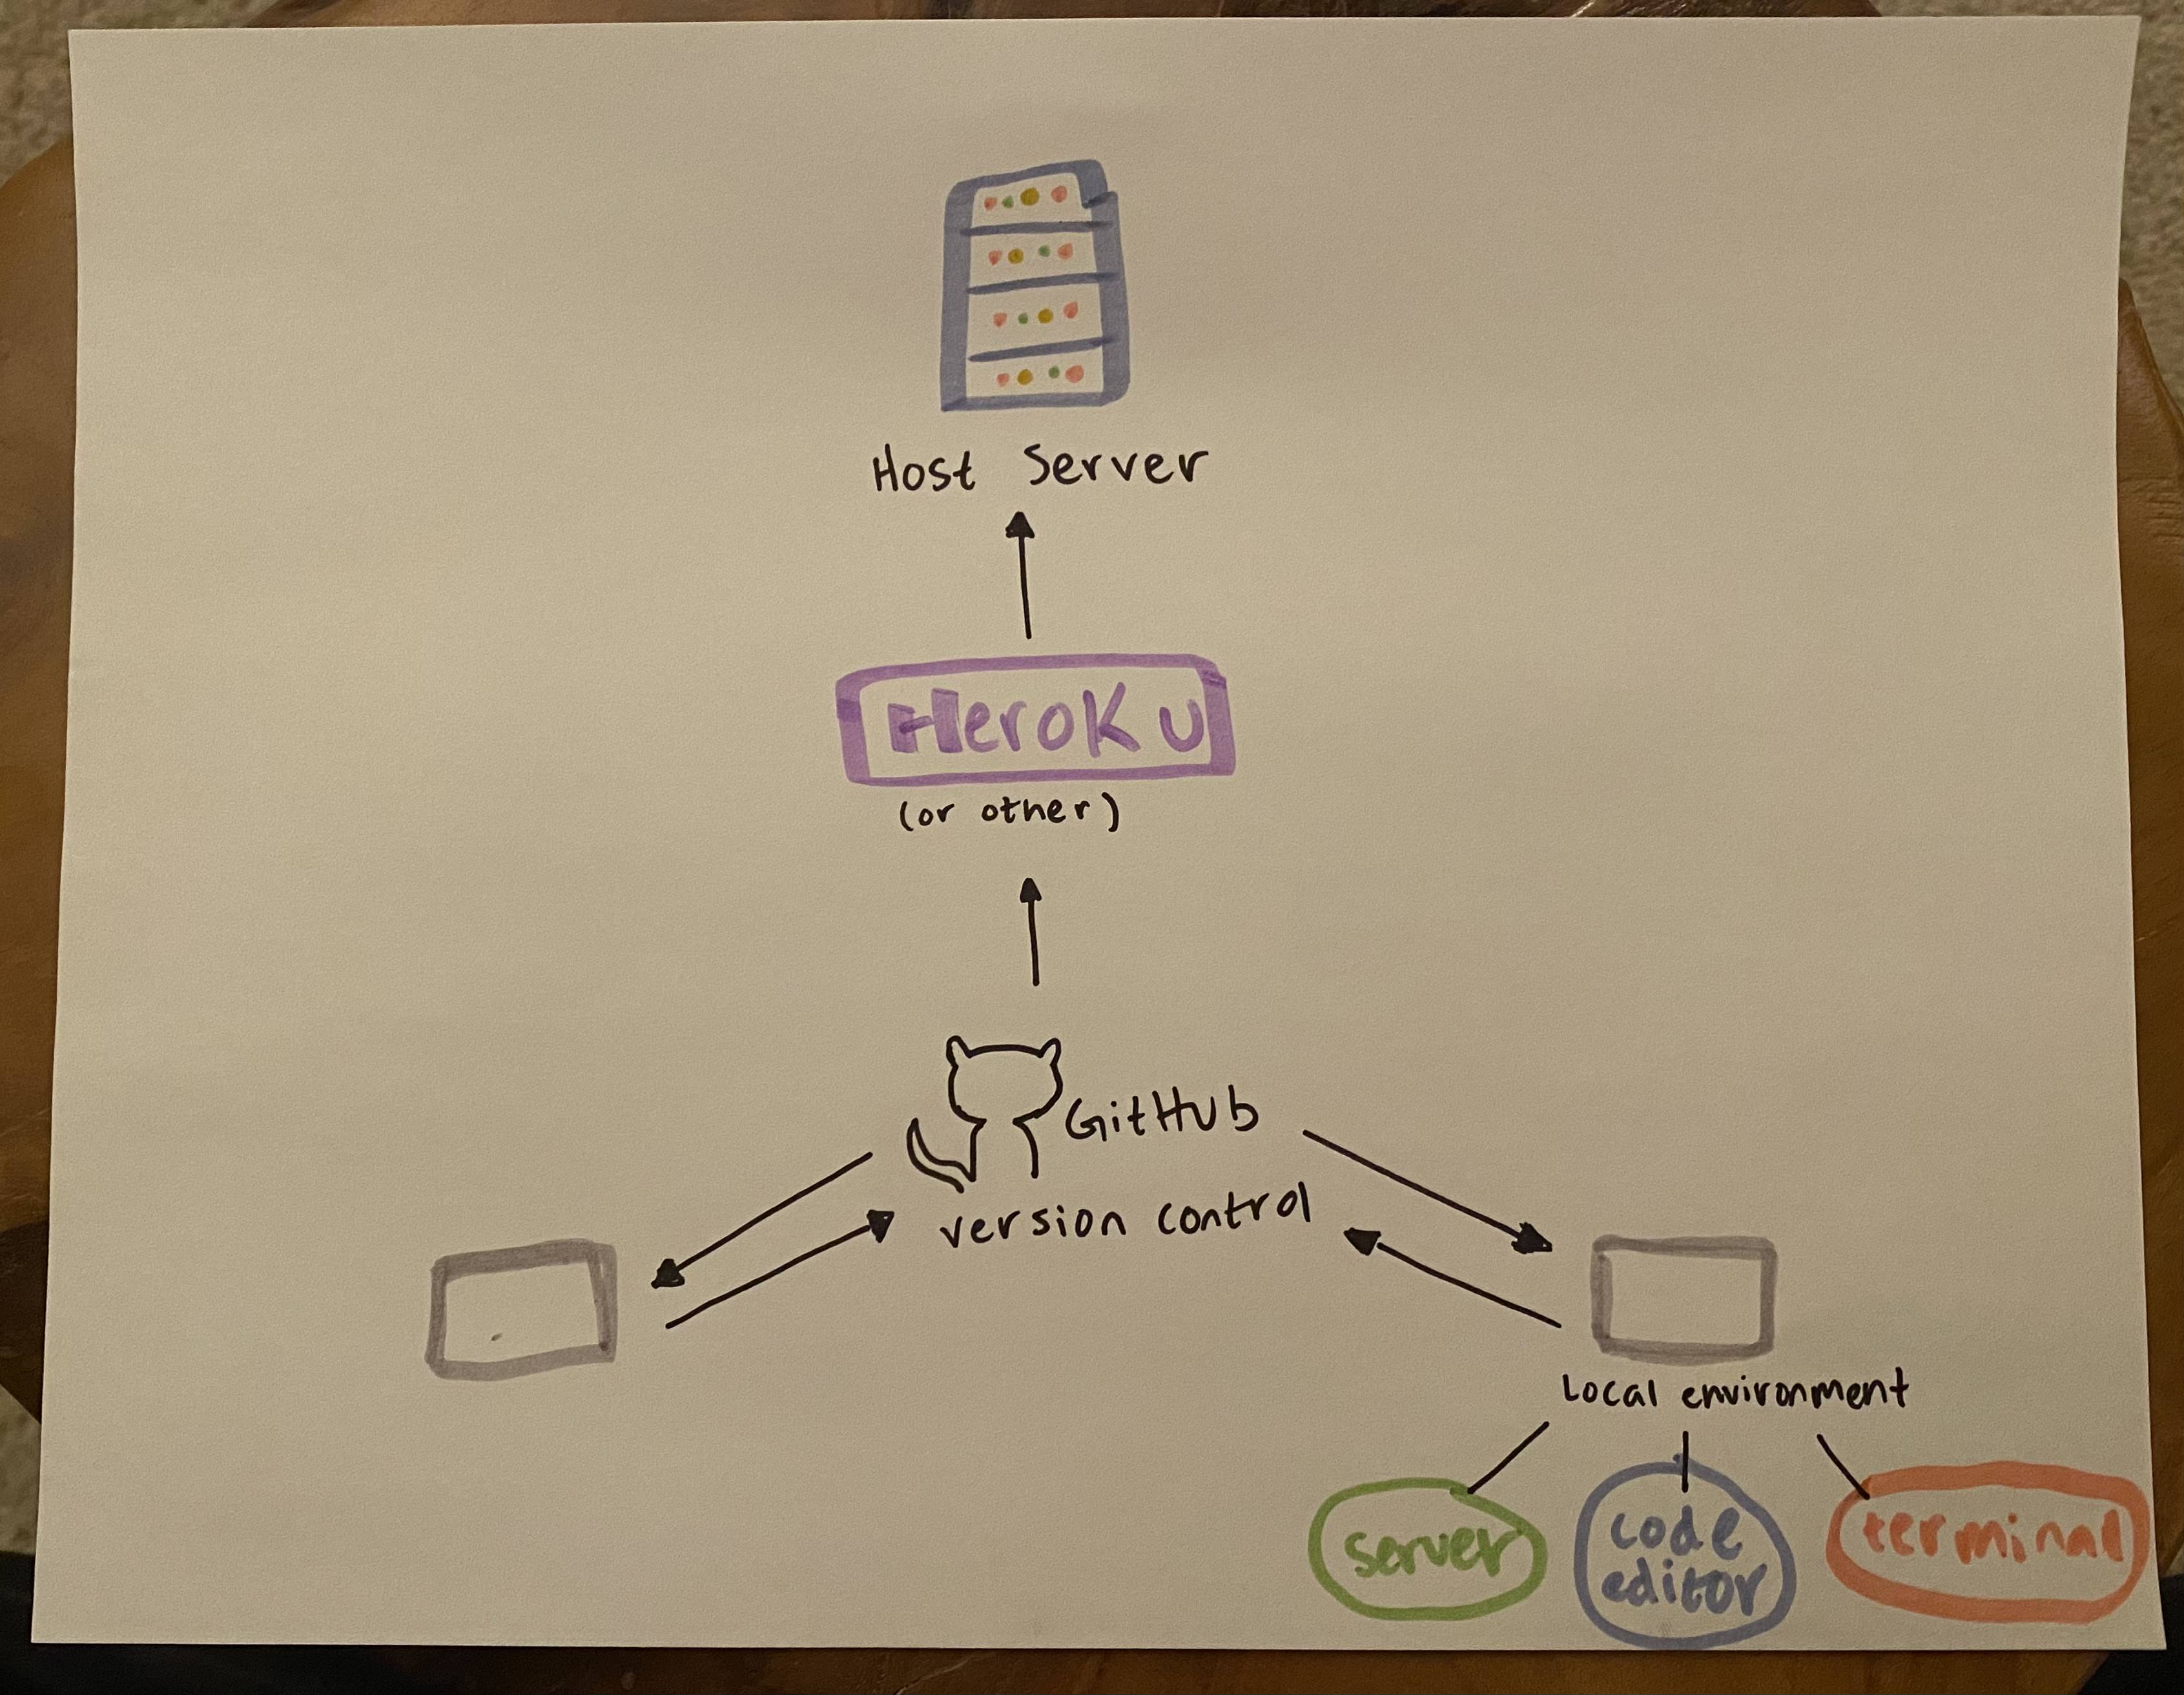 Host Server
Heroku
(or other)
GitHub
version control
Local environment
server
code
editor
terminal